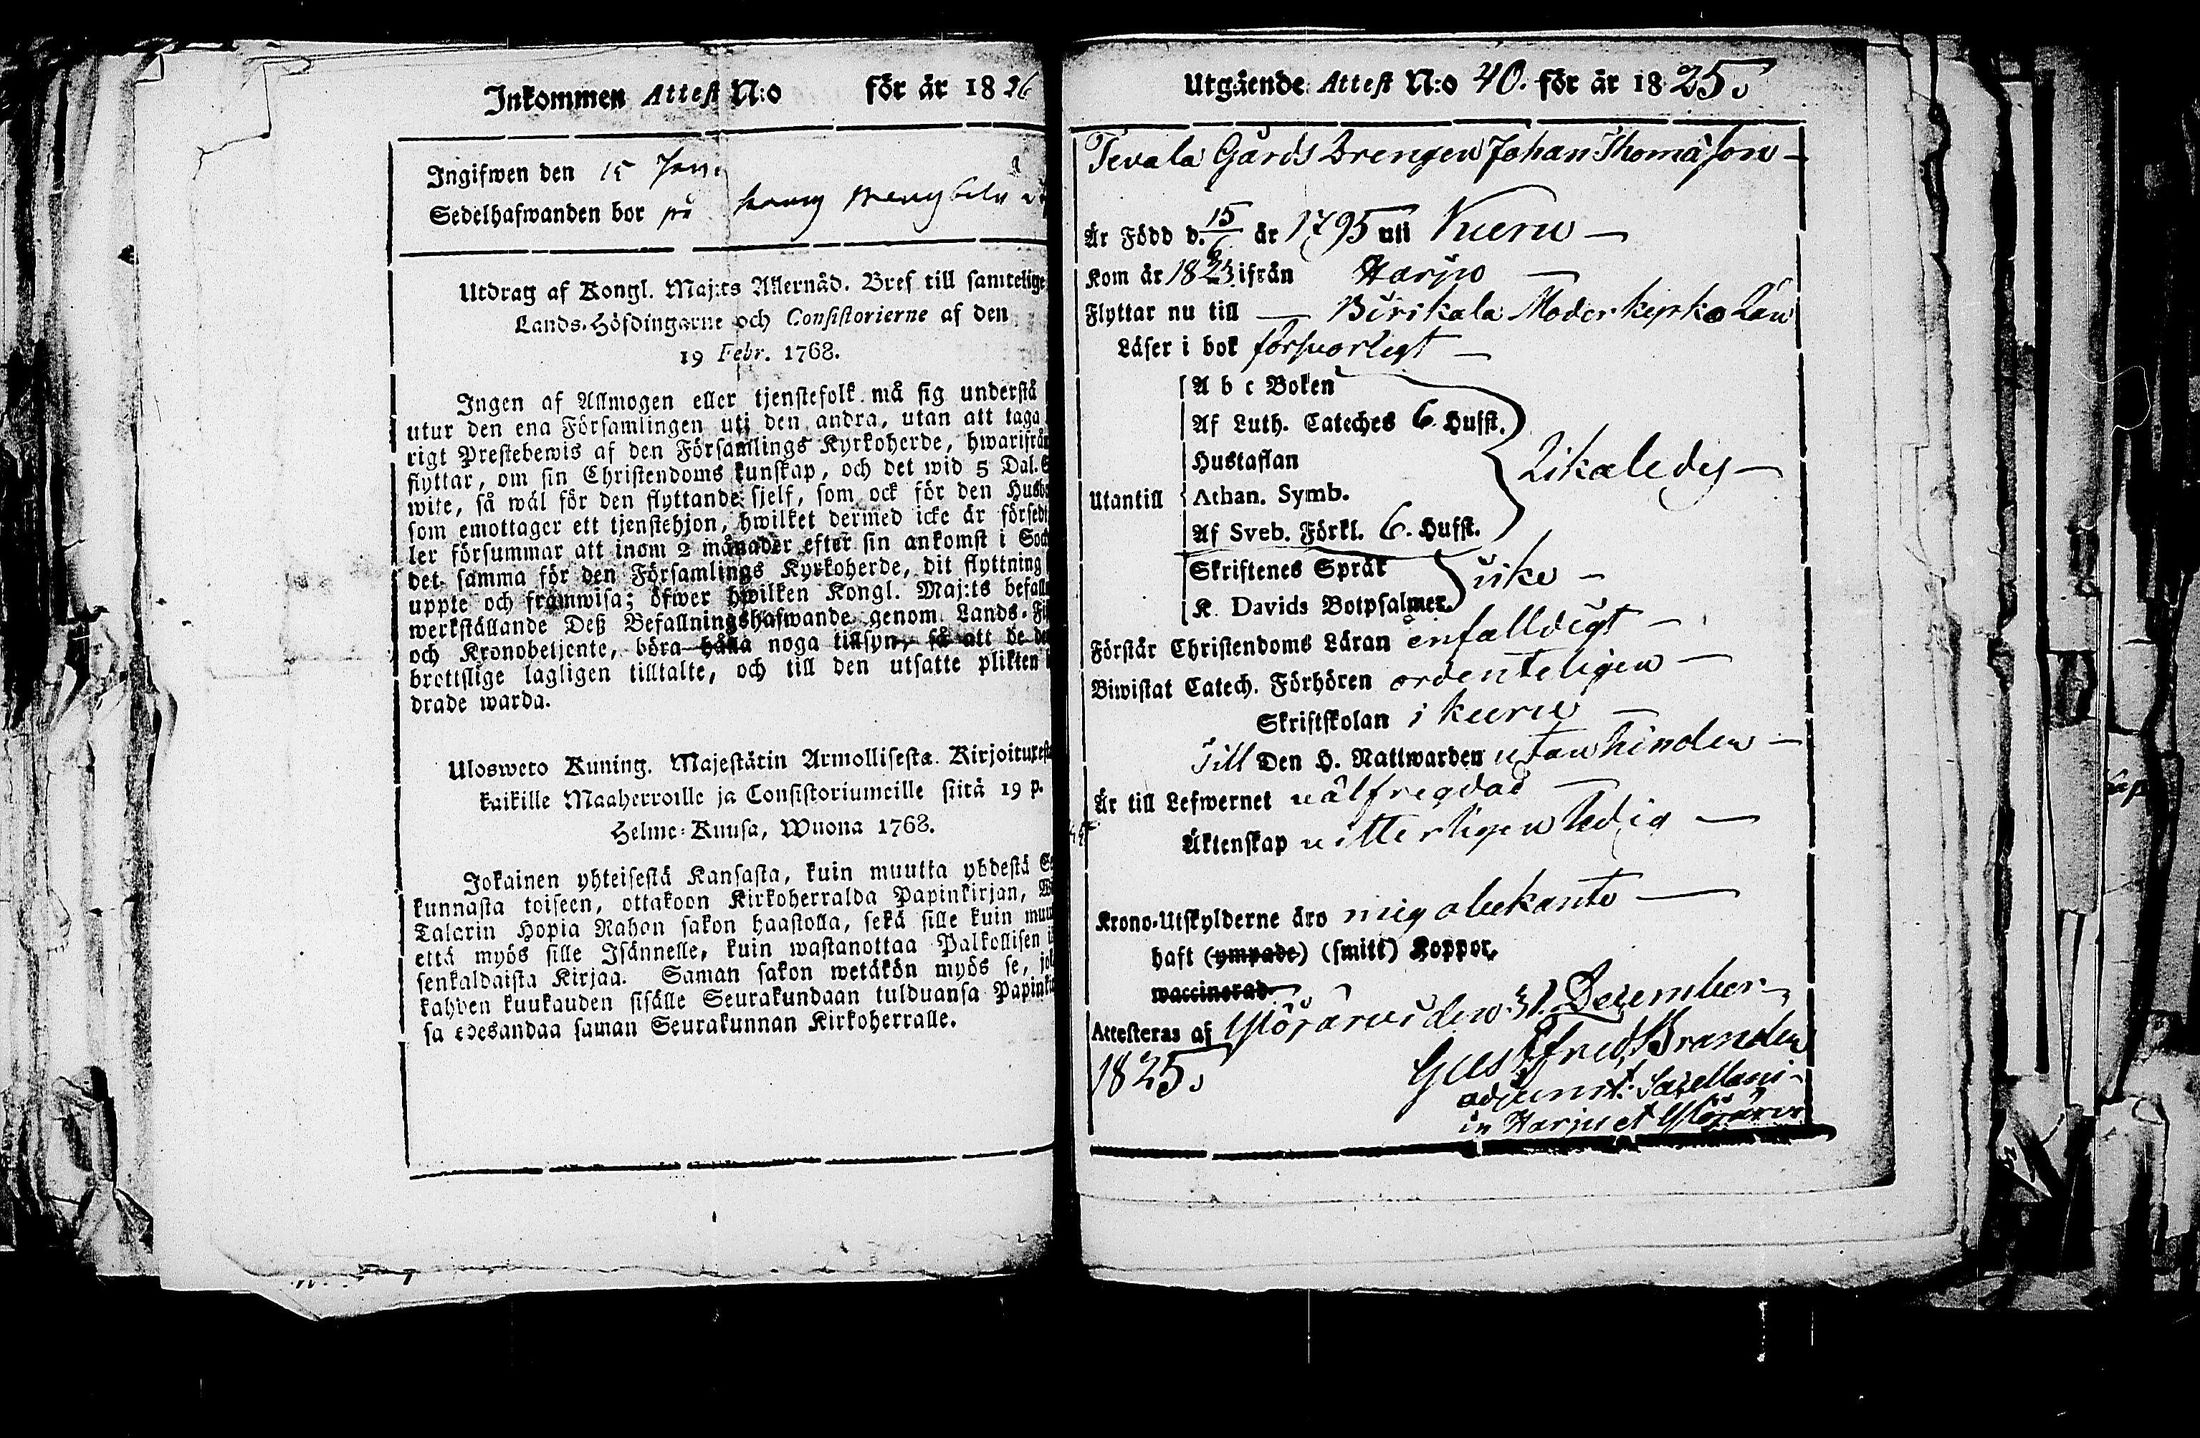 Inkommen Attest N:o för år 1826
Ingifwen den 15 Jan.
Sedelhafwanden bor på
Utdrag af Kongl. Maj:ts Allernåd. Bref till samtelige
Lands-Höfdingarne och Consistorierne af den
19 Febr. 1768.
Ingen af Allmogen eller tjenstefolk må sig understå
utur den ena Församlingen uti den andra, utan att taga
rigt Prestebewis af den Församlings Kyrkoherde, hwarifrån
flyttar, om sin Christendoms kunskap, och det wid 5 Dal. S
wite, så wäl för den flyttande sjelf, som ock för den Husb
som emottager ett tjenstehjon, hwilket dermed icke är försedt
ler försummar att inom 2 månader efter sin ankomst i Sock
det samma för den Församlings Kyrkoherde, dit flyttning
uppte och framwisa; öfwer hwilken Kongl. Maj:ts befalln
werkställande Deß Befallningshafwande genom Lands-Fi
och Kronobetjente, böra hålla noga tillsyn, så att de de
brottslige lagligen tilltalte, och till den utsatte plikten
drade warda.
Ulosweto Kuning. Majestätin Armollisesta Kirjoituxesta
kaikille Maaherroille ja Consistoriumeille siitä 19 p.
Helme-Kuusa, Wuona 1768.
Jokainen yhteisestä Kansasta, kuin muutta yhdestä Se
kunnasta toiseen, ottakoon Kirkoherralda Papinkirjan, W
Talarin Hopia Rahan sakon haastolla, sekä sille kuin muu
että myös sille Isännelle, kuin wastanottaa Palkollisen i
senkaldaista Kirjaa. Saman sakon wetäkön myös se, jok
kahden kuukauden sisälle Seurakundaan tulduansa Papinki
sa edesandaa saman Seurakunnan Kirkoherralle.
Utgående Attest N:o 40. för år 1825.
Tevala Gårds Drengen Johan Thomasson
Är Född d. 15/6 år 1795 uti Kuru
Kom år 1823 ifrån Harju
Flyttar nu till Birikala Moderkyrko Län
Läser i bok försvarligt
A b c Boken
Af Luth. Cateches 6 Hufst.
Hustaflan
Likaledes
Utantill
Athan. Symb.
Af Sveb. Förkl. 6. Hufst.
Skriftenes Språk
icke
K. Davids Botpsalmer.
Förstår Christendoms Läran enfalldigt
Biwistat Catech. Förhören ordenteligen
Skriftskolan i Kuru
Till Den H. Nattwarden utan hinder
Är till Lefwernet välfregdad
Äktenskap vitterligen ledig
Krono-Utskylderne äro mig obekante
haft (ympade) (smitt) Koppor,
waccinerad
Attesteras af Ylöjärvi den 31. December
1825.
Gust. Fred. Brander
adjunct. Sacellani
in Harju et Ylöjärvi